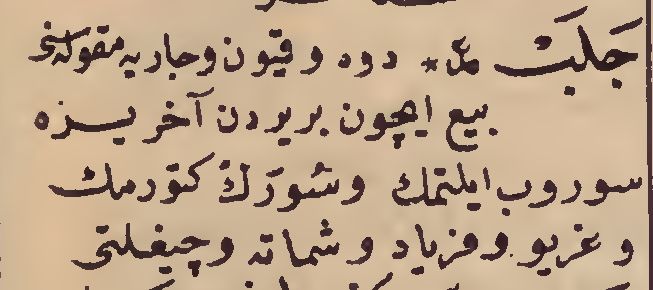 جَلَبْ ع * دوه و قیون و جاریه مقوله سنی
بیع ایچون بریردن آخر یــره
سوروب ایلتمك و سُورَرَك كتورمك
و غریو و فریاد و شماته و چیغلتی